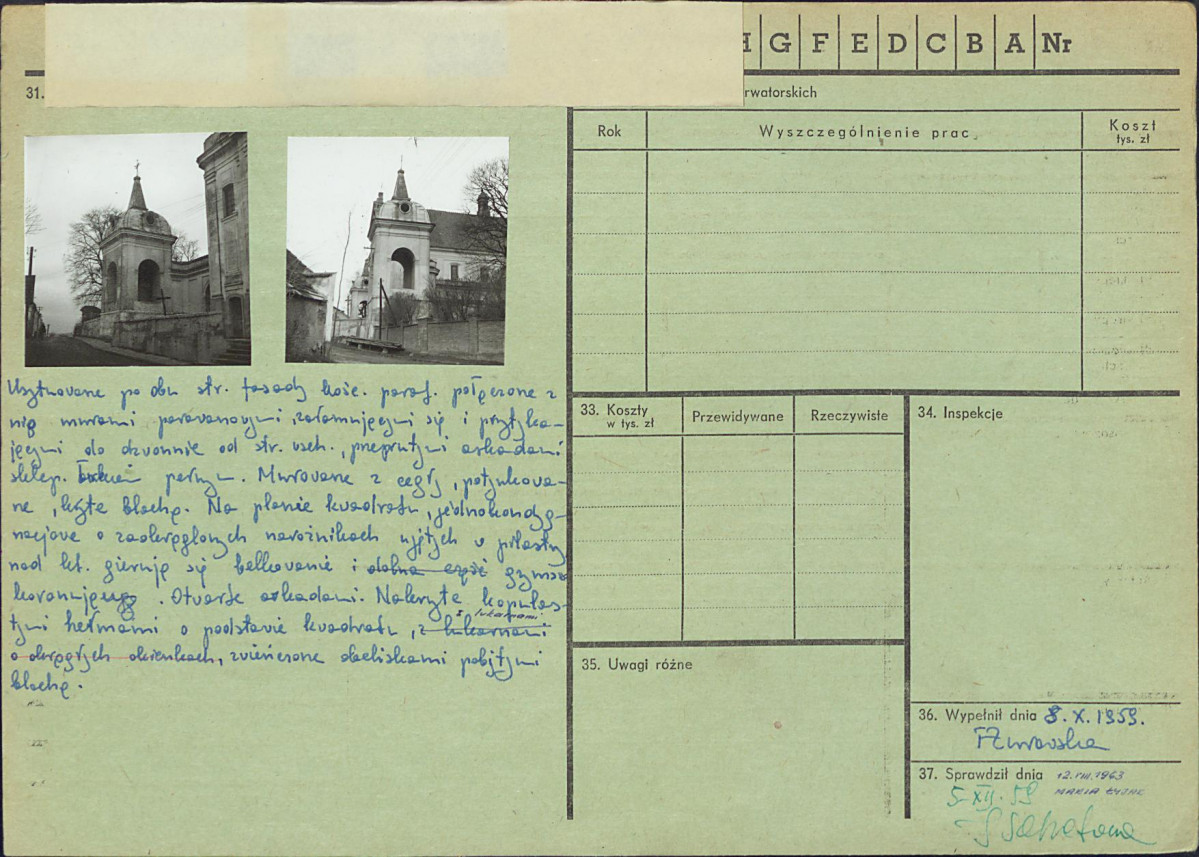 H G F E D C B A Nr
31.
rwatorskich
Rok Wyszczególnienie prac Koszt
tys. zł
Usytuowane po obu str. fasady kośc. paraf. połączone z
nią murami parawanowymi, załamującymi się i przytyka-
jącymi do dzwonnic od str. wsch., przeprutymi arkadami
sklep. pełnym. Murowane z cegły, potynkowa-
ne, kryte blachą. Na planie kwadratu, jednokondyg-
nacjowe o zaokrąglonych narożnikach ujętych w pilastry
nad kt. gierują się belkowanie i dolna część gzymsu
koronującego. Otwarte arkadami. Nakryte kopulas-
z lukarnami
tymi hełmami o podstawie kwadratu, z lukarnami
o okrągłych okienkach, zwieńczone obeliskami pobitymi
blachą.
33. Koszty
w tys. zł
Przewidywane Rzeczywiste
34. Inspekcje
35. Uwagi różne
36. Wypełnił dnia 8. X. 1959.
37. Sprawdził dnia 12.VIII.1963
MARIA ŁYŻAK
5 XII. 59